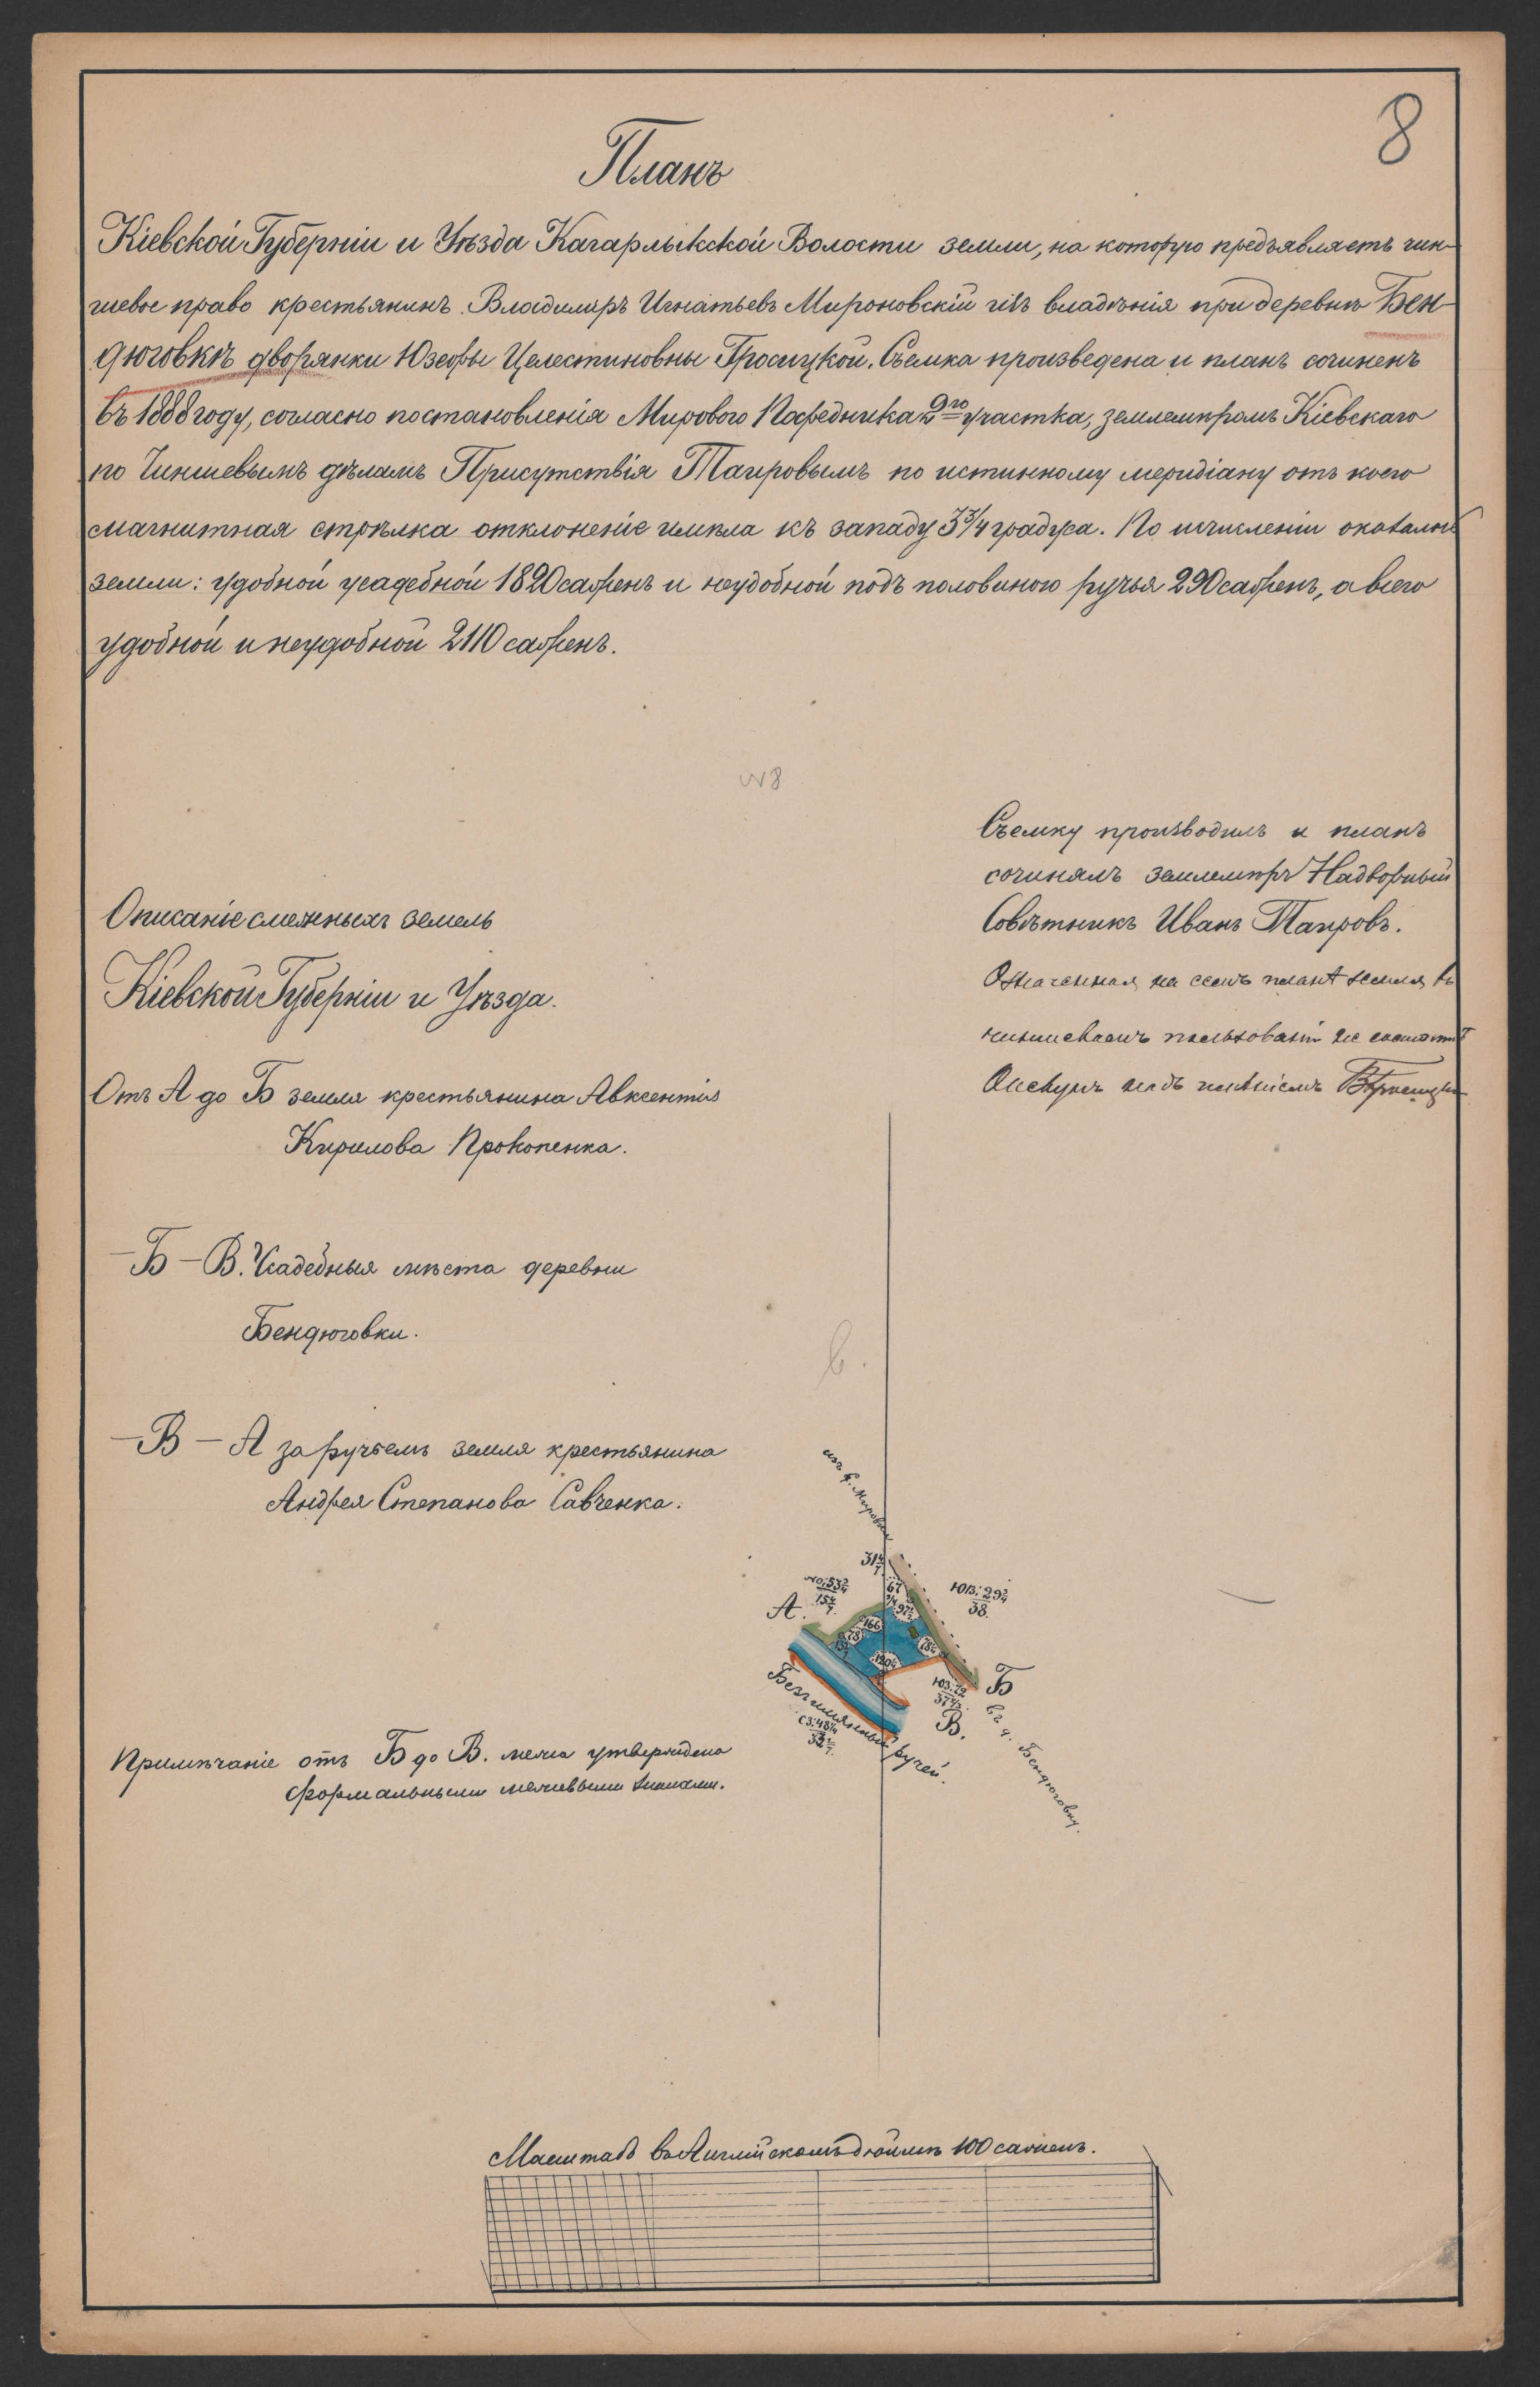 8
Планъ
Кіевской Губерніи и Уѣзда Кагарлыкской Волости земли, на которую предъявляетъ чин-
шевое право крестьянинъ Владиміръ Игнатьевъ Мироновскій изъ владѣнія при деревнѣ Бен-
дюговкѣ дворянки Юзефы Целестиновны Тросицкой. Съемка произведена и планъ сочиненъ
въ 1888 году, согласно постановленія Мирового Посредника 2го участка, землемѣромъ Кіевскаго
по Чиншевымъ дѣламъ Присутствія Таировымъ по истинному меридіану отъ коего
магнитная стрѣлка отклоненіе имѣла къ западу 3¾ градуса. По исчисленіи оказалось
земли: удобной усадебной 1820 саженъ и неудобной подъ половиною ручья 290 саженъ, а всего
удобной и неудобной 2110 саженъ.
№ 8
Съемку производилъ и планъ
сочинялъ землемѣръ Надворный
Совѣтникъ Иванъ Таировъ.
Означенная на семъ планѣ земля въ
чиншевомъ пользованіи не состоитъ
Описаніе смежныхъ земель
Кіевской Губерніи и Уѣзда.
Отъ А до Б земля крестьянина Авксентія
Кирилова Прокопенка.
— Б — В. Усадебныя мѣста деревни
Бендюговки.
в.
— В — А за ручьемъ земля крестьянина
Андрея Степанова Савченка.
А.
ЮВ: 29¾
38.
166
78
Б
В.
Безъимянный ручей.
въ д. Бендюговку.
Примѣчаніе отъ Б до В. межа утверждена
формальными межевыми знаками.
Масштабъ въ Англійскомъ дюймѣ 100 саженъ.